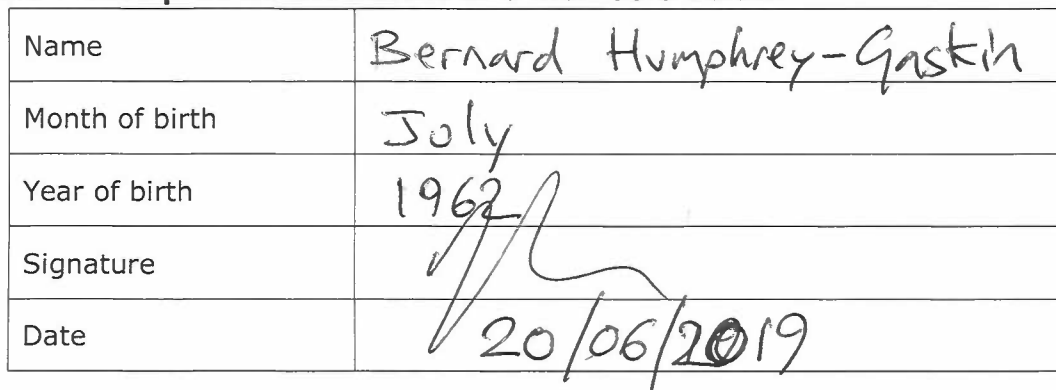 Name Bernard Humphrey-Gaskin
Month of birth July
Year of birth 1962
Signature
Date 20/06/2019